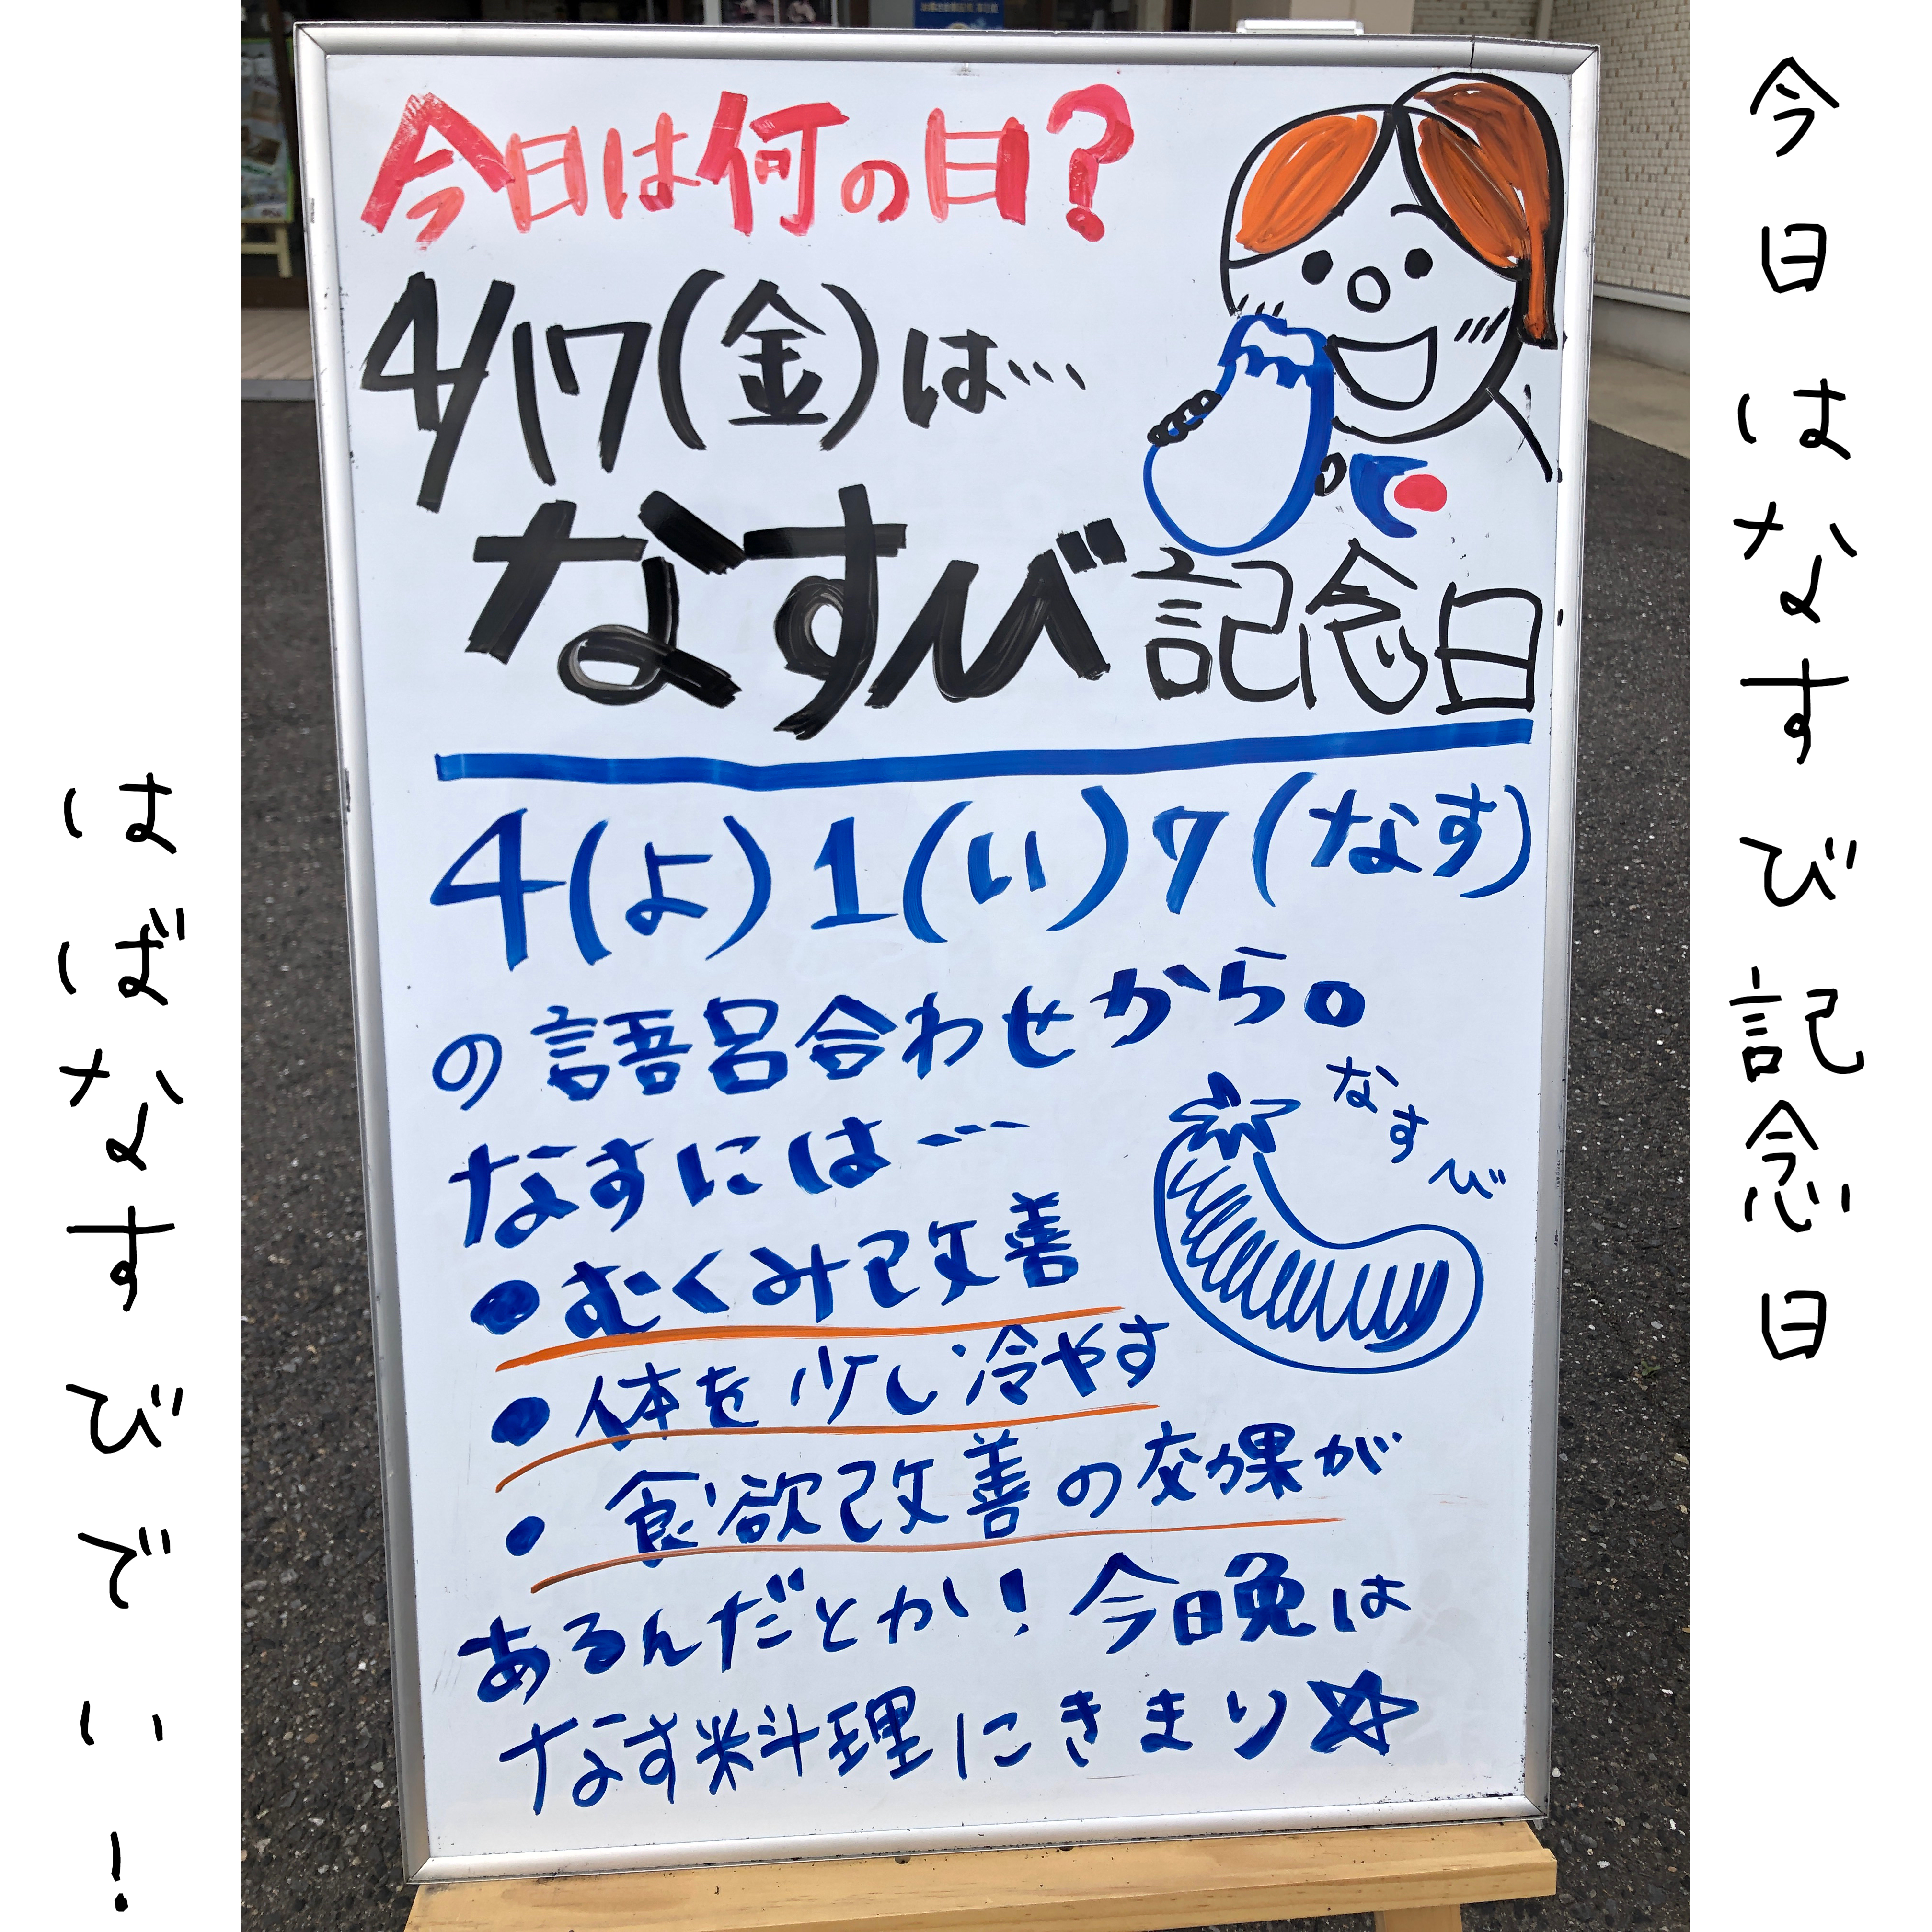 今日はなすび記念日
今日は何の日?
4/17(金)は…
なすび記念日
4(よ)1(い)7(なす)
の語呂合わせから。
なすには…
なすび
●むくみ改善
●体を少し冷やす
●食欲改善の効果が
あるんだとか!今日晩は
なす料理にきまり☆
はばなすびでい!